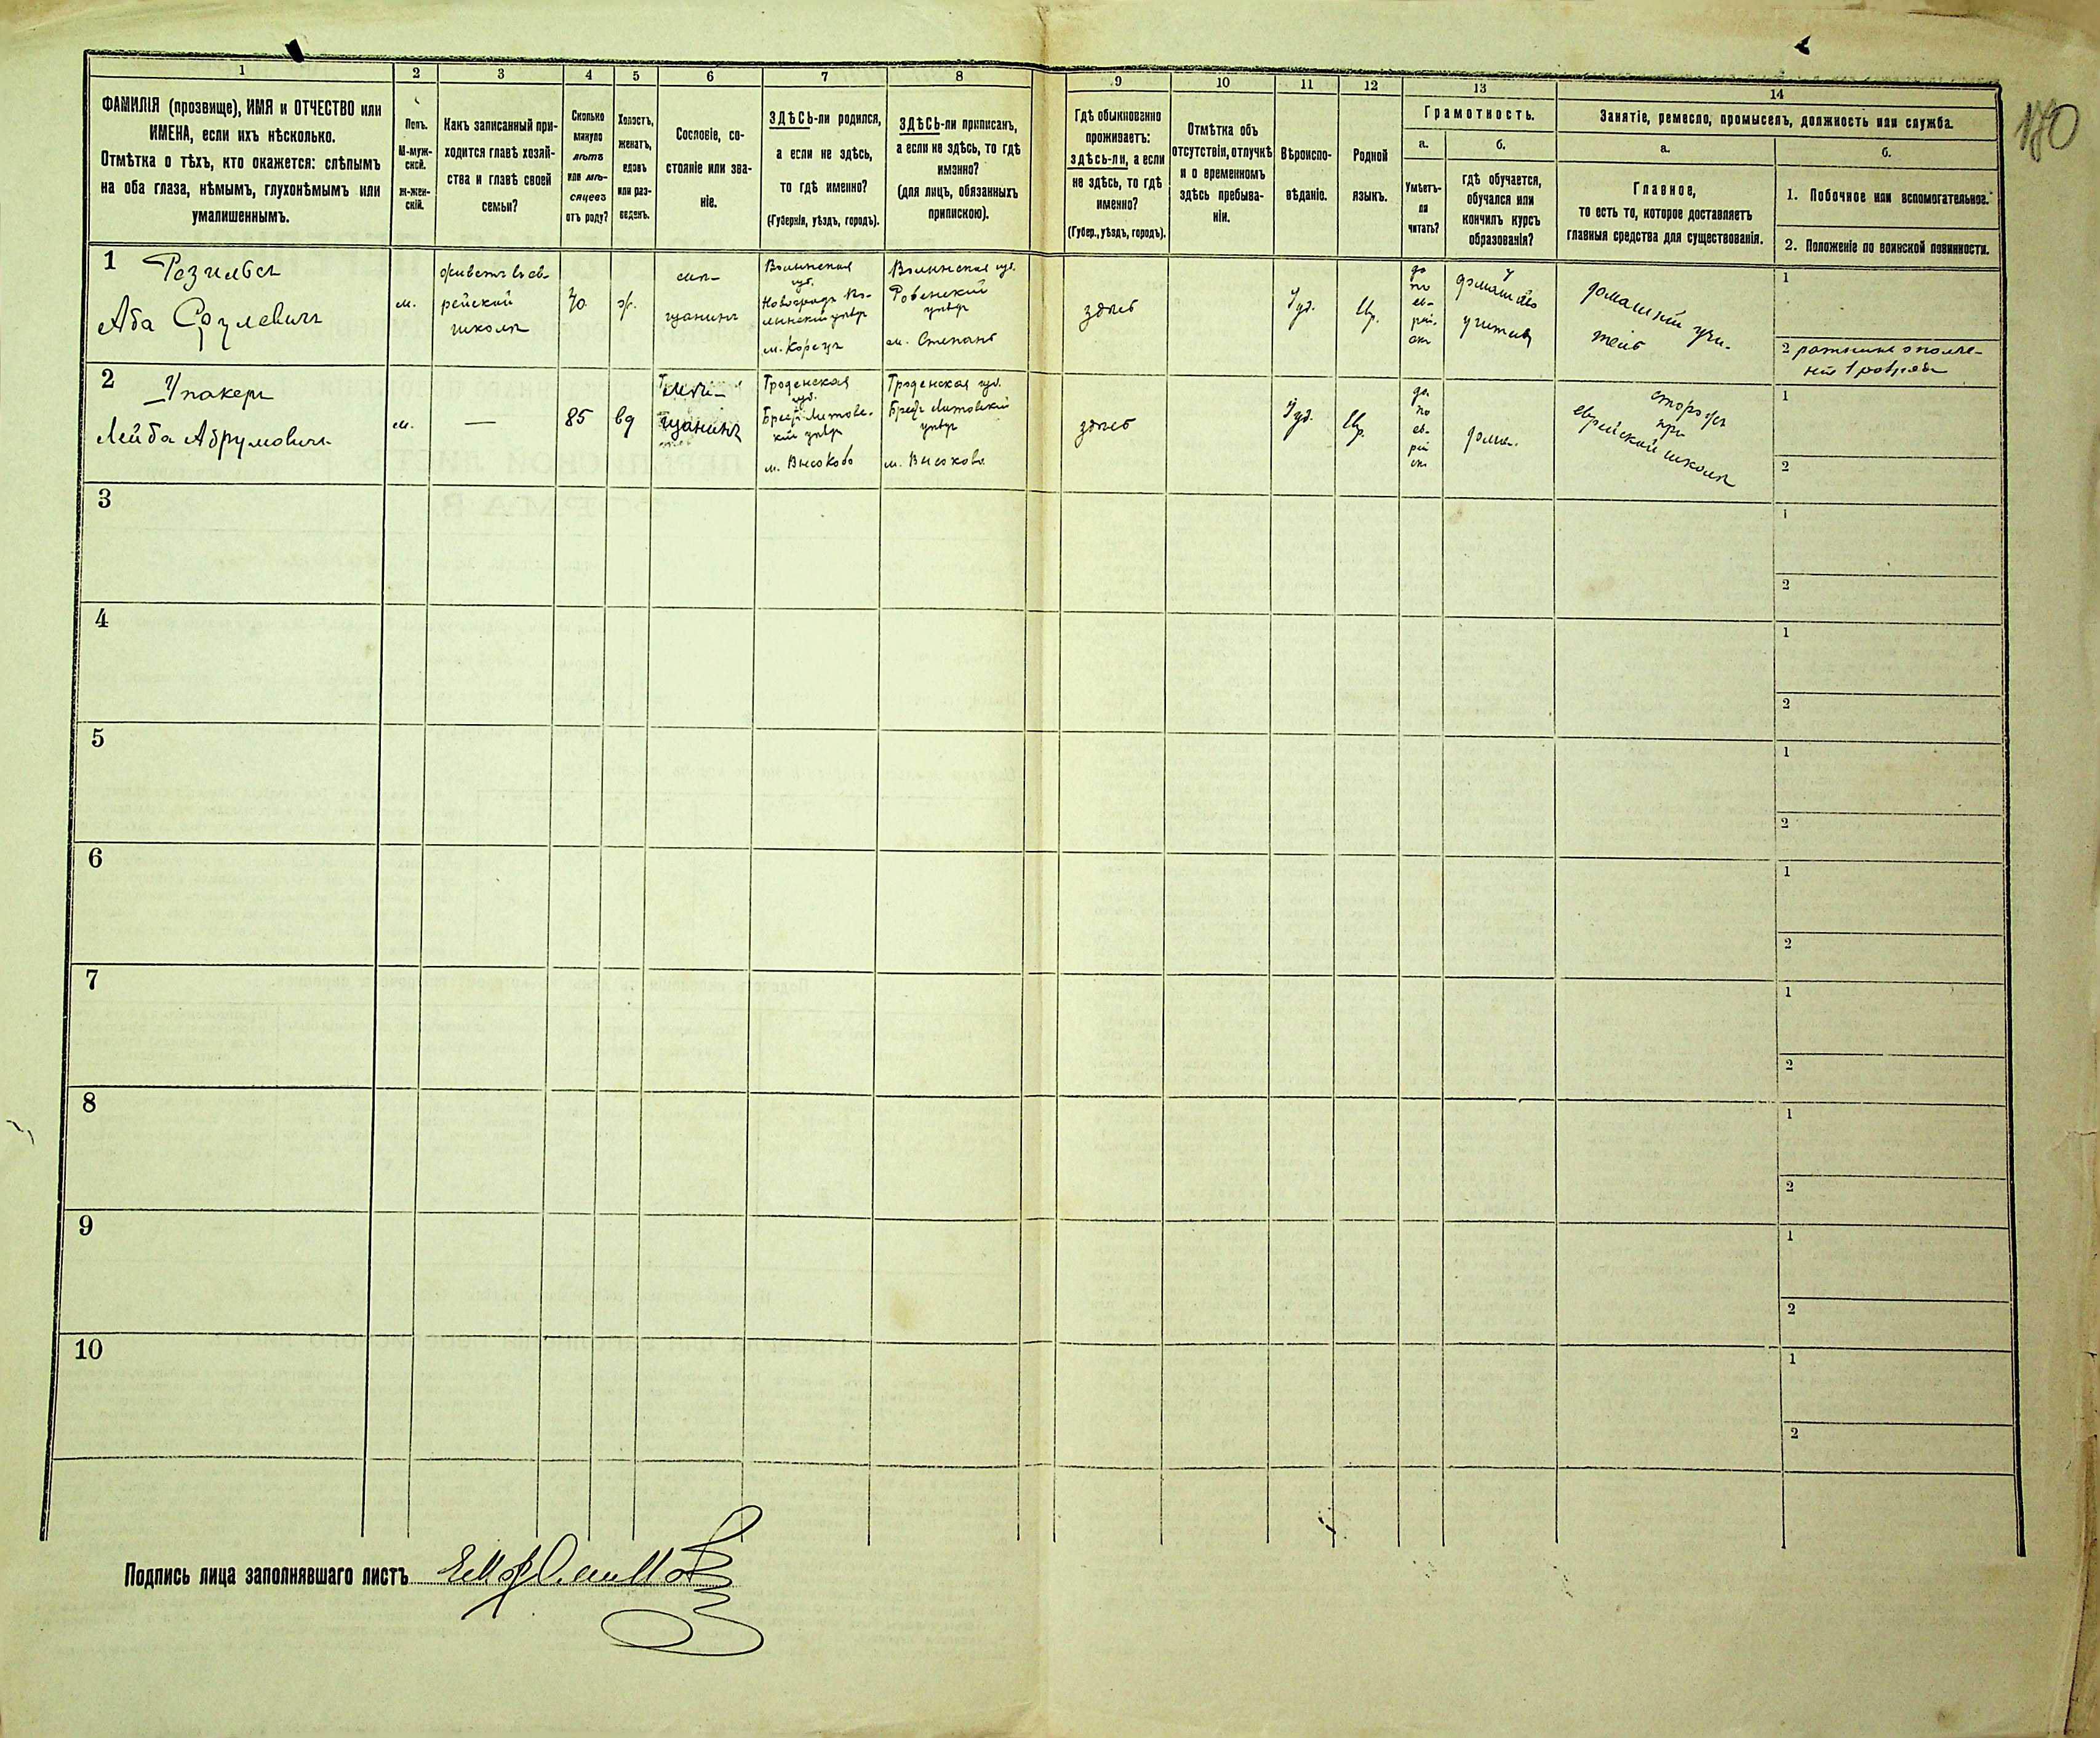 170
1 2 3 4 5 6 7 8 9 10 11 12 13 14
ФАМИЛІЯ (прозвище), ИМЯ и ОТЧЕСТВО или
ИМЕНА, если ихъ нѣсколько.
Отмѣтка о тѣхъ, кто окажется: слѣпымъ
на оба глаза, нѣмымъ, глухонѣмымъ или
умалишеннымъ.
Полъ.
М-муж-
ской.
Ж-жен-
скій.
Какъ записанный при-
ходится главѣ хозяй-
ства и главѣ своей
семьи?
Сколько
минуло
лѣтъ
или мѣ-
сяцевъ
отъ роду?
Холостъ,
женатъ,
вдовъ
или раз-
веденъ.
Сословіе, со-
стояніе или зва-
ніе.
ЗДѢСЬ-ли родился,
а если не здѣсь,
то гдѣ именно?
(Губернія, уѣздъ, городъ).
ЗДѢСЬ-ли приписанъ,
а если не здѣсь, то гдѣ
именно?
(для лицъ, обязанныхъ
припискою).
Гдѣ обыкновенно
проживаетъ:
здѣсь-ли, а если
не здѣсь, то гдѣ
именно?
(Губер., уѣздъ, городъ).
Отмѣтка объ
отсутствіи, отлучкѣ
и о временномъ
здѣсь пребыва-
ніи.
Вѣроиспо-
вѣданіе.
Родной
языкъ.
Грамотность.
а.
Умѣетъ-
ли
читать?
б.
гдѣ обучается,
обучался или
кончилъ курсъ
образованія?
Занятіе, ремесло, промыселъ, должность или служба.
а.
Главное,
то есть то, которое доставляетъ
главныя средства для существованія.
б.
1. Побочное или вспомогательное.
2. Положеніе по воинской повинности.
1
Аба
м.
живетъ въ ев-
рейской
школѣ
ж.
мѣ-
щанинъ
Волынская
губ.
Новоградъ Во-
лынскій уѣзд
м. Корецъ
Волынская губ.
Ровенскій
уѣзд
м. Степань
здѣсь
Іуд.
Евр.
да
по
ев-
рей-
ски
домашній учи-
тель
1
2 ратникъ ополче-
нія 1 разряда
2
Лейба Абрумовичъ
м.
—
85
вд
мѣ-
щанинъ
Гродненская
губ.
Брест Литовс-
кій уѣзд
м. Высоково
Гродненская губ.
Брест Литовскій
уѣзд
м. Высоково
здѣсь
Іуд.
Евр.
да
по
ев-
рей
ски
дома.
сторожъ
при
еврейской школѣ
1
2
3
1
2
4
1
2
5
1
2
6
1
2
7
1
2
8
1
2
9
1
2
10
1
2
Подпись лица заполнявшаго листъ